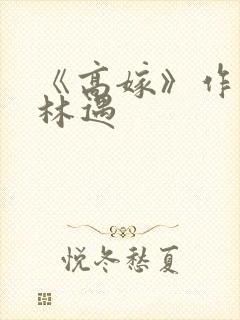 《高嫁》作
林遇
悦冬愁夏